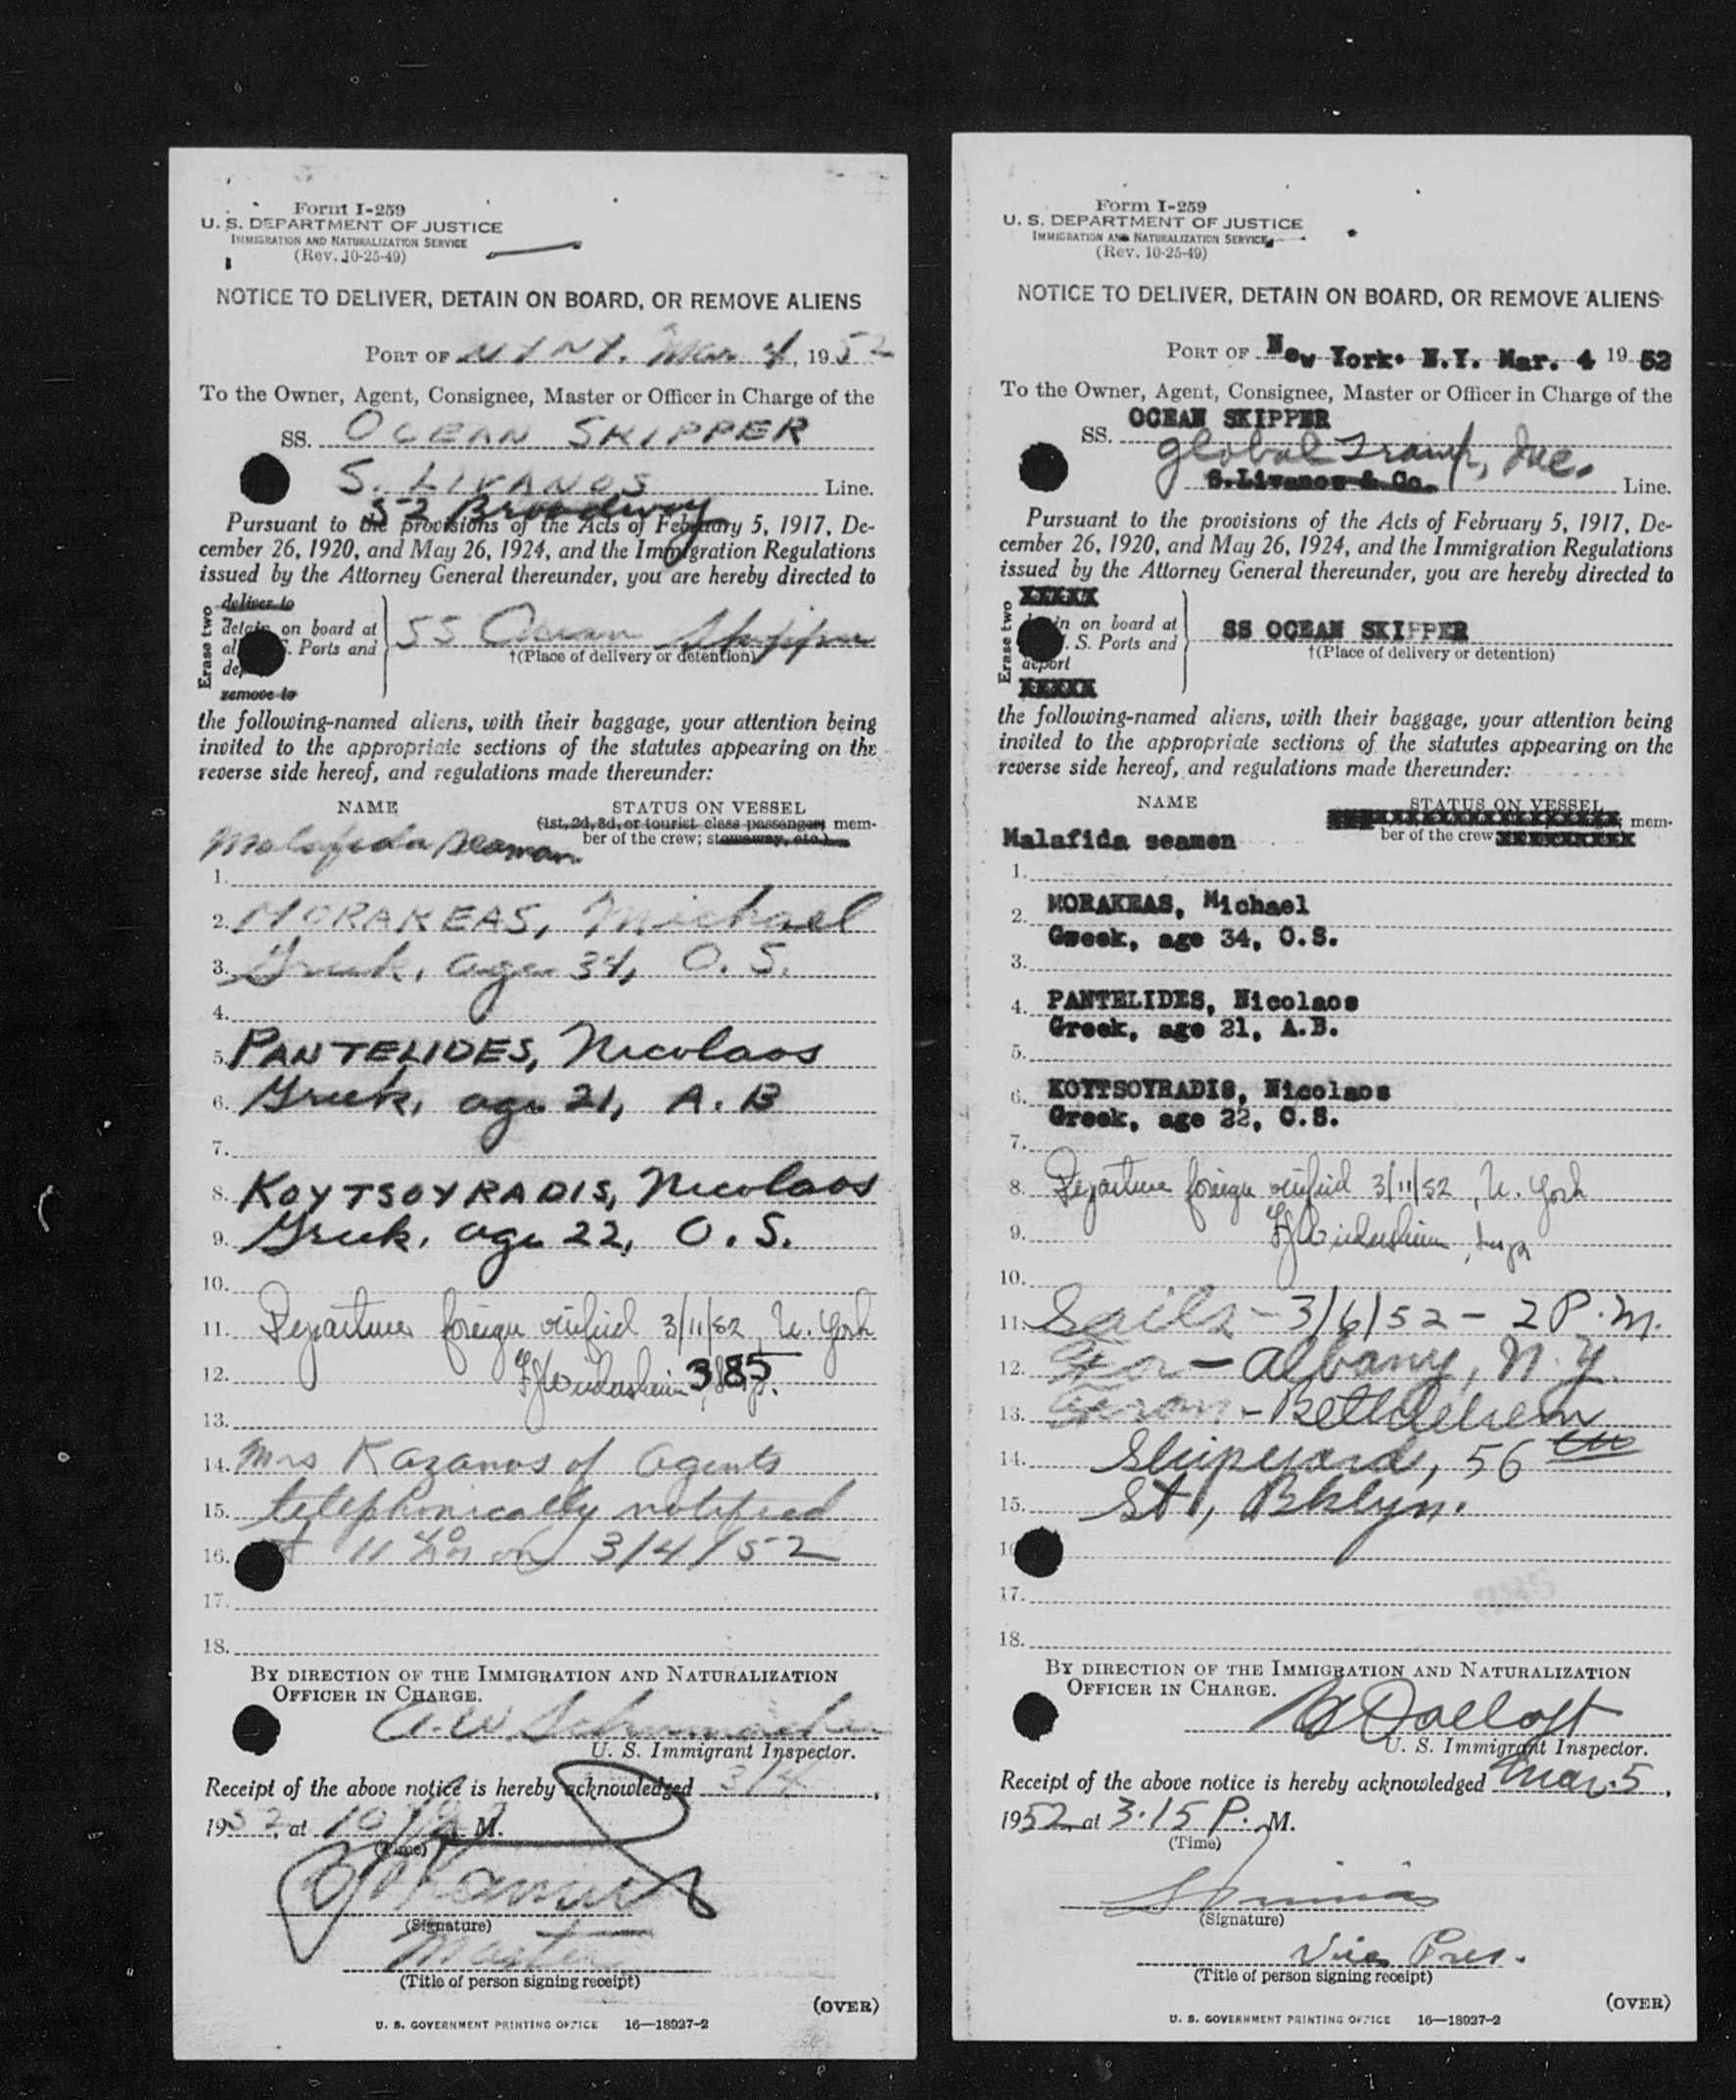 Form I-259
U. S. DEPARTMENT OF JUSTICE
IMMIGRATION AND NATURALIZATION SERVICE
(Rev. 10-25-49)
NOTICE TO DELIVER, DETAIN ON BOARD, OR REMOVE ALIENS
PORT OF NY NY. Mar. 4, 1952
To the Owner, Agent, Consignee, Master or Officer in Charge of the
SS. OCEAN SKIPPER
S. LIVANOS Line.
52 Broadway
Pursuant to the provisions of the Acts of February 5, 1917, De-
cember 26, 1920, and May 26, 1924, and the Immigration Regulations
issued by the Attorney General thereunder, you are hereby directed to
Erase two
deliver to
detain on board at
S. Ports and
remove to
SS Ocean Skipper
†(Place of delivery or detention)
the following-named aliens, with their baggage, your attention being
invited to the appropriate sections of the statutes appearing on the
reverse side hereof, and regulations made thereunder:
NAME STATUS ON VESSEL
(1st, 2d, 3d, or tourist class passenger; mem-
ber of the crew; stowaway, etc.)
Malafida Seaman
1.
2. MORAKEAS, Michael
3. Greek, age 34, O. S.
4.
5. PANTELIDES, Nicolaos
6. Greek, age 21, A. B
7.
8. KOYTSOYRADIS, Nicolaos
9. Greek, age 22, O. S.
10.
11. Departure foreign verified 3/11/52, N. York
12. 385
13.
14. Mrs Kazanos of agents
15. telephonically notified
16. 11 40 on 3/4/52
17.
18.
BY DIRECTION OF THE IMMIGRATION AND NATURALIZATION
OFFICER IN CHARGE.
U. S. Immigrant Inspector.
Receipt of the above notice is hereby acknowledged 3/4,
1952, at 10 M.
(Time)
(Signature)
Master
(Title of person signing receipt)
(OVER)
U. S. GOVERNMENT PRINTING OFFICE 16—18927-2
Form I-259
U. S. DEPARTMENT OF JUSTICE
IMMIGRATION AND NATURALIZATION SERVICE
(Rev. 10-25-49)
NOTICE TO DELIVER, DETAIN ON BOARD, OR REMOVE ALIENS
PORT OF New York. N.Y. Mar. 4 1952
To the Owner, Agent, Consignee, Master or Officer in Charge of the
SS. OCEAN SKIPPER
Global Tramp, Inc.
S.Livanos & Co. Line.
Pursuant to the provisions of the Acts of February 5, 1917, De-
cember 26, 1920, and May 26, 1924, and the Immigration Regulations
issued by the Attorney General thereunder, you are hereby directed to
Erase two
XXXXX
on board at
. S. Ports and
deport
XXXXX
SS OCEAN SKIPPER
†(Place of delivery or detention)
the following-named aliens, with their baggage, your attention being
invited to the appropriate sections of the statutes appearing on the
reverse side hereof, and regulations made thereunder:
NAME STATUS ON VESSEL
mem-
ber of the crew
Malafida seamen
1.
2. MORAKEAS, Michael
Gweek, age 34, O.S.
3.
4. PANTELIDES, Nicolaos
Greek, age 21, A.B.
5.
6. KOYTSOYRADIS, Nicolaos
Greek, age 22, O.S.
7.
8. Departure foreign verified 3/11/52, N. York
9.
10.
11. Sails - 3/6/52 - 2 P.M.
12. For - Albany, N.Y.
13. From - Bethlehem
14. Shipyard, 56th
15. St, Bklyn.
17.
18.
BY DIRECTION OF THE IMMIGRATION AND NATURALIZATION
OFFICER IN CHARGE.
U. S. Immigrant Inspector.
Receipt of the above notice is hereby acknowledged Mar. 5,
1952, at 3.15 P. M.
(Time)
(Signature)
Vice Pres.
(Title of person signing receipt)
(OVER)
U. S. GOVERNMENT PRINTING OFFICE 16—18927-2